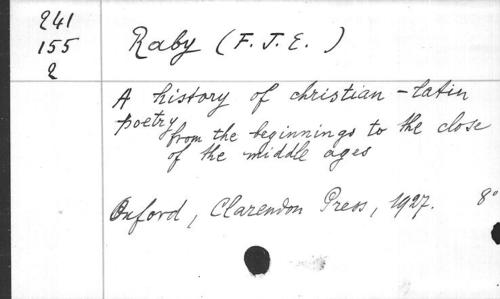 241
155
2
Raby (F. J. E. )
A history of christian - latin
poetry from the beginnings to the close
of the middle ages
Oxford, Clarendon Press, 1927. 8°